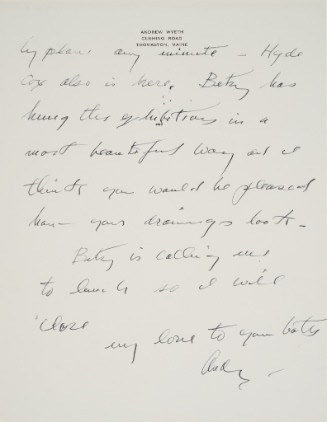 ANDREW WYETH
CUSHING ROAD
THOMASTON, MAINE
by phone any minute – Hyde
Cox also is here. Betsy has
hung the exhibitions in a
most beautiful way and I
think you would be pleased
how your drawings look –
Betsy is calling me
to lunch so I will
close
my love to you both
Andy –